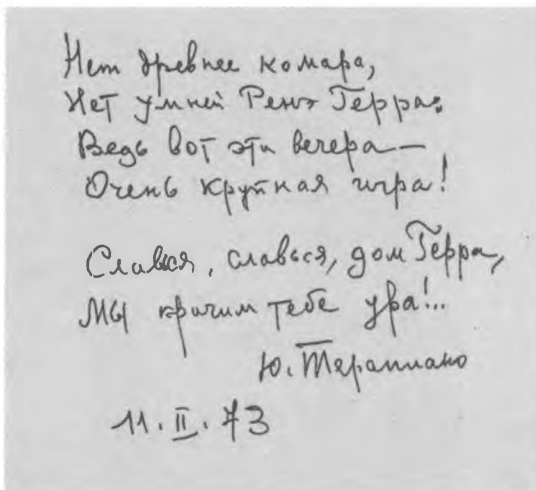 Нет древнее комара,
Нет умней Ренэ Герра:
Ведь вот эти вечера —
Очень крупная игра!
Славься, славься, дом Герра,
Мы кричим тебе ура!..
Ю. Терапиано
11.II.73